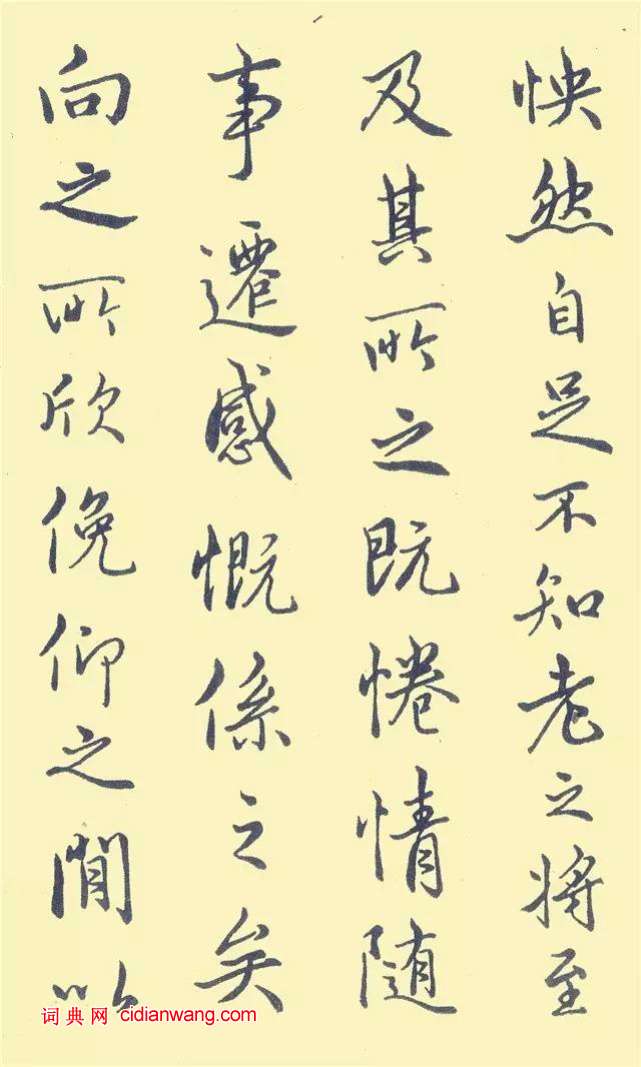 怏然自足不知老之将至
及其所之既惓情随
事遷感慨係之矣
向之所欣俛仰之閒以
词典网 cidianwang.com